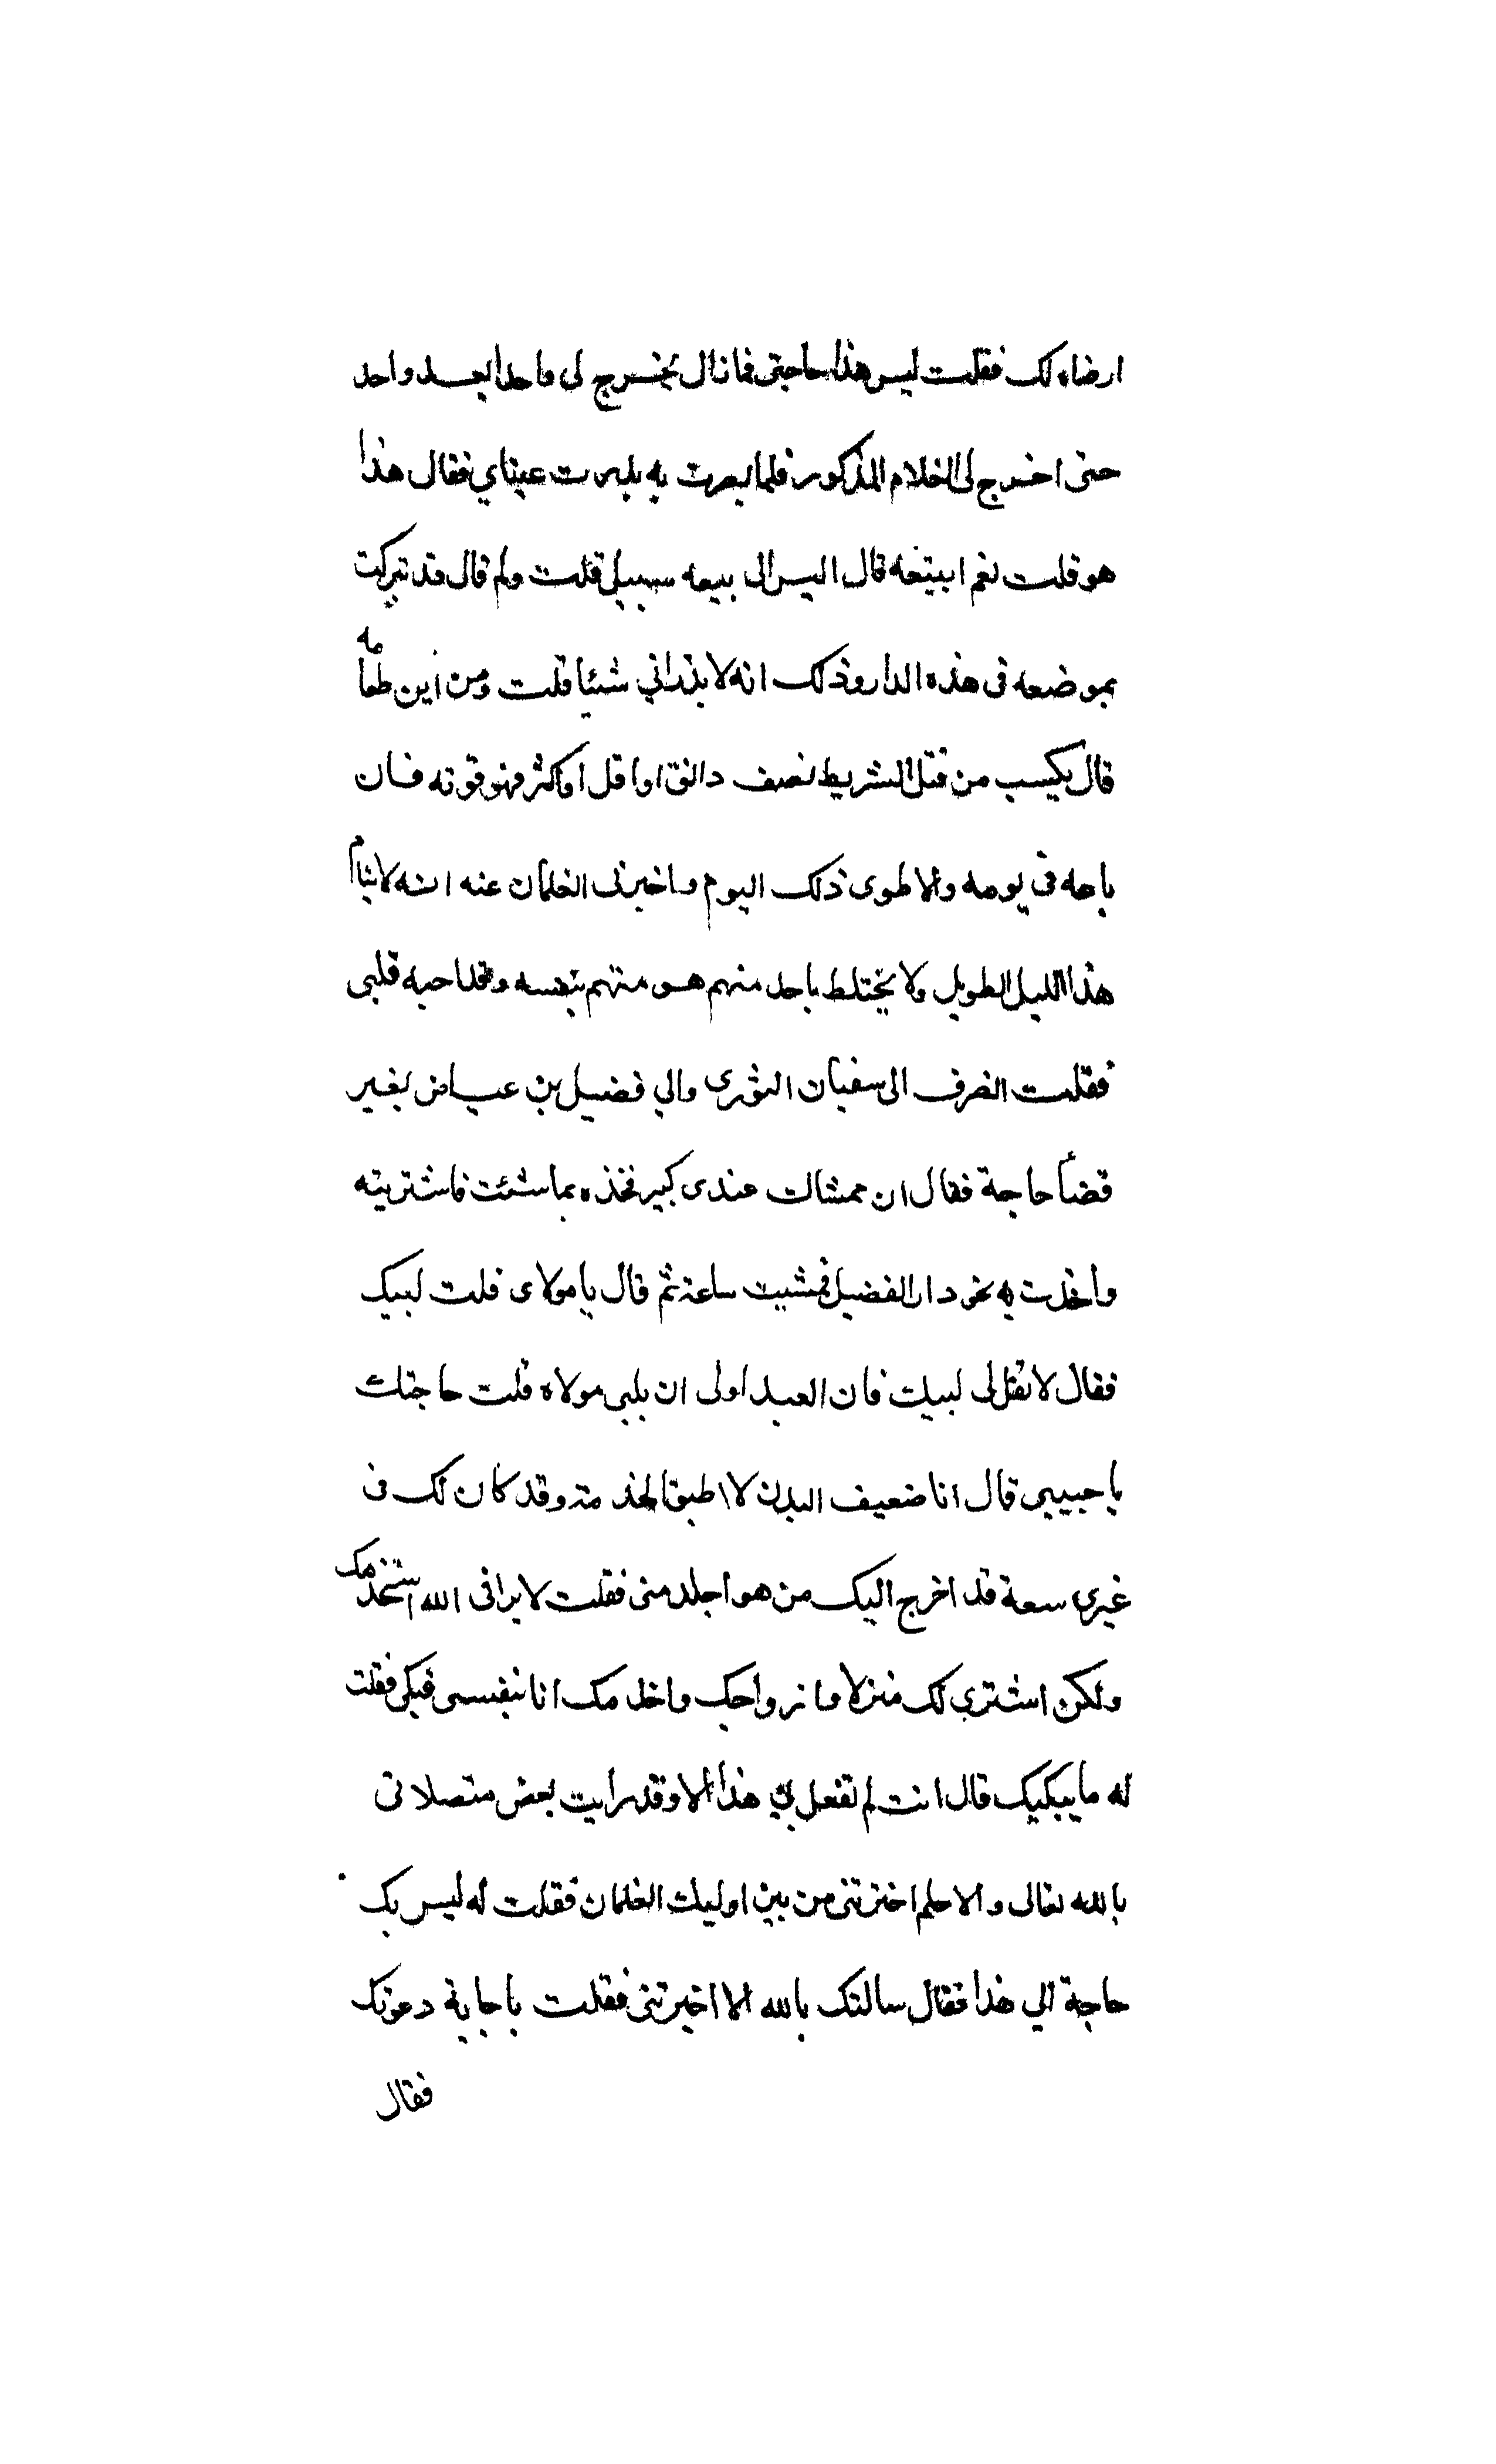 ارضاه لك فقلت ليس هذا حاجتى فما زال يخرج لى واحدا بعد واحد
حتى اخرج لى الغلام المذكور فلما بصرت به بدرت عيناي فقال هذا
هو قلت نعم ابيتعه قال اليس الى بيعه سبيل قلت ولم قال قد تبركت
بموضعه فى هذه الدار وذلك انه لا يذراني شيئا قلت ومن اين طعامه
قال يكسب من فتل الشريط نصف دانق او اقل او اكثر فهو قوته فان
باعه فى يومه والا طوى ذلك اليوم واخبرنى الغلمان عنه انه لا ينام
هذا الليل الطويل ولا يختلط باحد منهم هو متهم بنفسه وقد احبه قلبى
فقلت انصرف الى سفيان الثورى والي فضيل بن عياض بغير
قضأ حاجة فقال ان ممشاك عندى كبير فخذه بما شئت فاشتريته
وأخذت به نحو دار الفضيل فمشيت ساعة ثم قال يا مولاى قلت لبيك
فقال لا تقل لى لبيك فان العبد اولى ان يلبى مولاه قلت حاجتك
يا حبيبى قال انا ضعيف البدن لا اطيق الخذمته وقد كان لك فى
غيرى سعة قد اخرج اليك من هو اجلد منى فقلت لا يرانى الله استخدمك
ولكن اشترى لك منزلا وازواجك واخدمك انا بنفسى فبكى فقلت
له ما يبكيك قال انت لم تفعل بى هذا الا وقد رايت بعض متصلاتى
بالله تعالى والا حلم اخترتنى من بين اوليك الغلمان فقلت له ليس بك
حاجة الي هذا فقال سالتك بالله الا اخبرتنى فقلت باجابة دعوتك
فقال